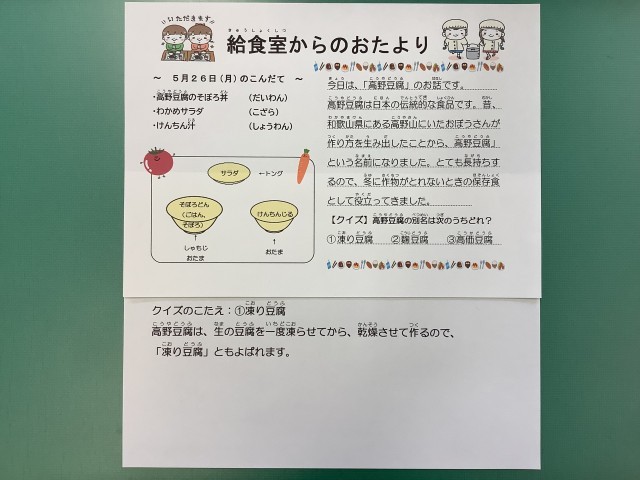 いただきます!!
給食室からのおたより
～ 5月26日(月)のこんだて ～
・高野豆腐のそぼろ丼 (だいわん)
・わかめサラダ (こざら)
・けんちん汁 (しょうわん)
サラダ ←トング
そぼろどん
(ごはん、
そぼろ)
↑
しゃもじ
おたま
けんちんじる
↑
おたま
今日は、「高野豆腐」のお話です。
高野豆腐は日本の伝統的な食品です。昔、
和歌山県にある高野山にいたおぼうさんが
作り方を生み出したことから、高野豆腐」
という名前になりました。とても長持ちす
るので、冬に作物がとれないときの保存食
として役立ってきました。
【クイズ】高野豆腐の別名は次のうちどれ?
①凍り豆腐 ②麹豆腐 ③高価豆腐
クイズのこたえ：①凍り豆腐
高野豆腐は、生の豆腐を一度凍らせてから、乾燥させて作るので、
「凍り豆腐」ともよばれます。